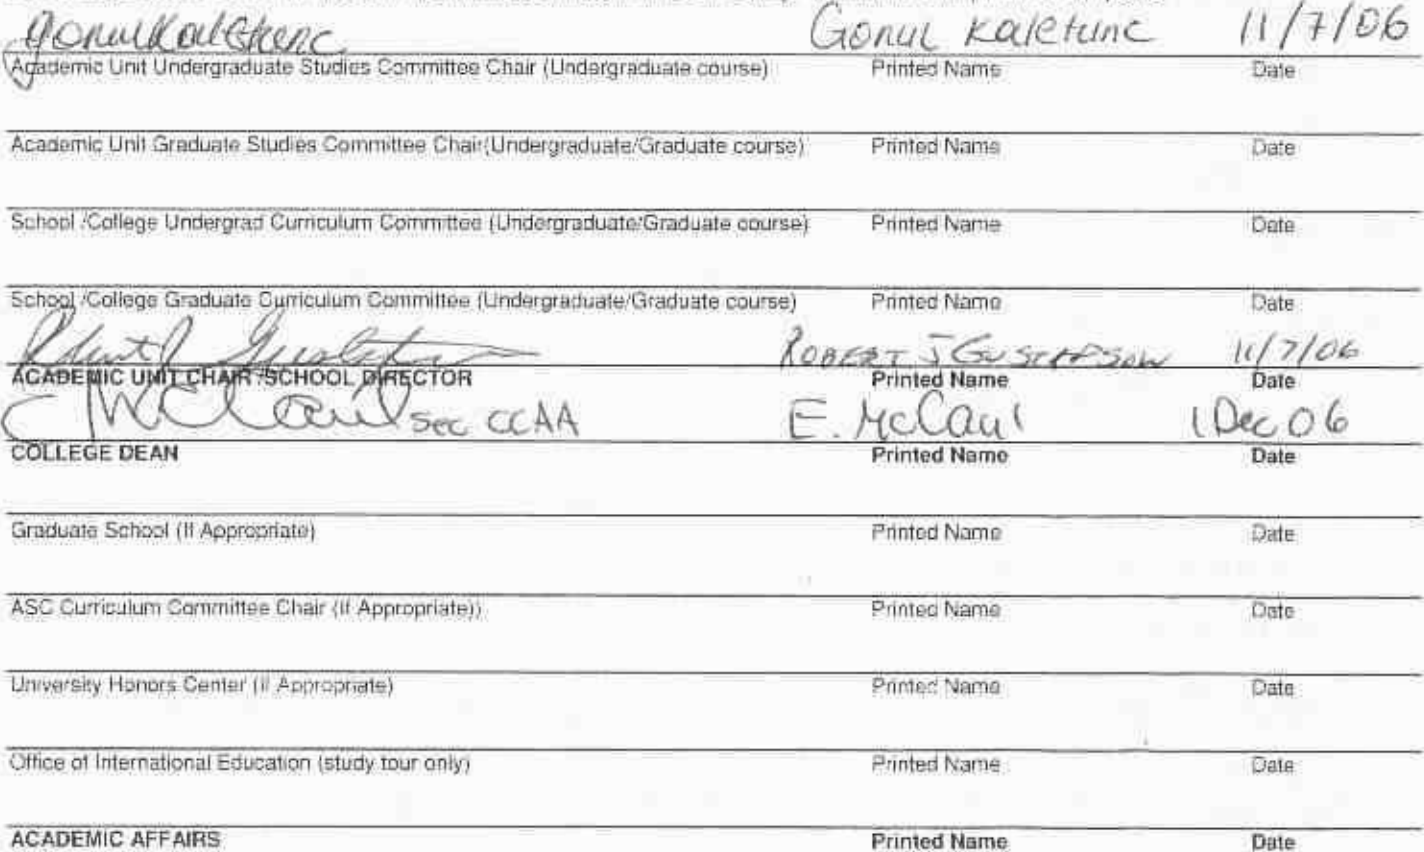 Gonul Kaletunc Gonul Kaletunc 11/7/06
Academic Unit Undergraduate Studies Committee Chair (Undergraduate course) Printed Name Date
Academic Unit Graduate Studies Committee Chair(Undergraduate/Graduate course) Printed Name Date
School /College Undergrad Curriculum Committee (Undergraduate/Graduate course) Printed Name Date
School /College Graduate Curriculum Committee (Undergraduate/Graduate course) Printed Name Date
Robert J Gustafson ROBERT J GUSTAFSON 11/7/06
ACADEMIC UNIT CHAIR /SCHOOL DIRECTOR Printed Name Date
E McCaul Sec CCAA E. McCaul 1 Dec 06
COLLEGE DEAN Printed Name Date
Graduate School (If Appropriate) Printed Name Date
ASC Curriculum Committee Chair (If Appropriate)) Printed Name Date
University Honors Center (If Appropriate) Printed Name Date
Office of International Education (study tour only) Printed Name Date
ACADEMIC AFFAIRS Printed Name Date